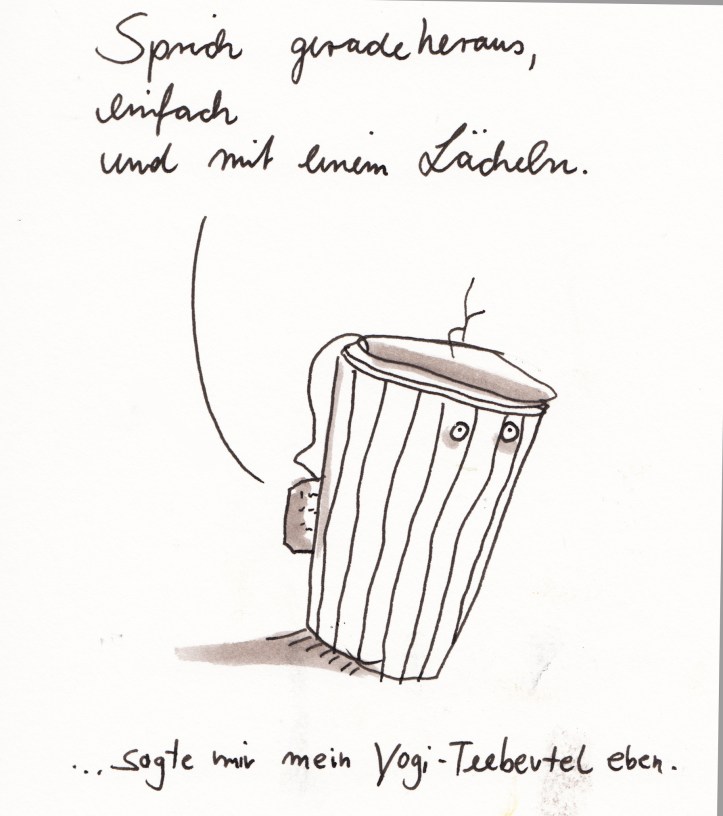 Sprich geradeheraus,
einfach
und mit einem Lächeln.
... sagte mir mein Yogi-Teebeutel eben.